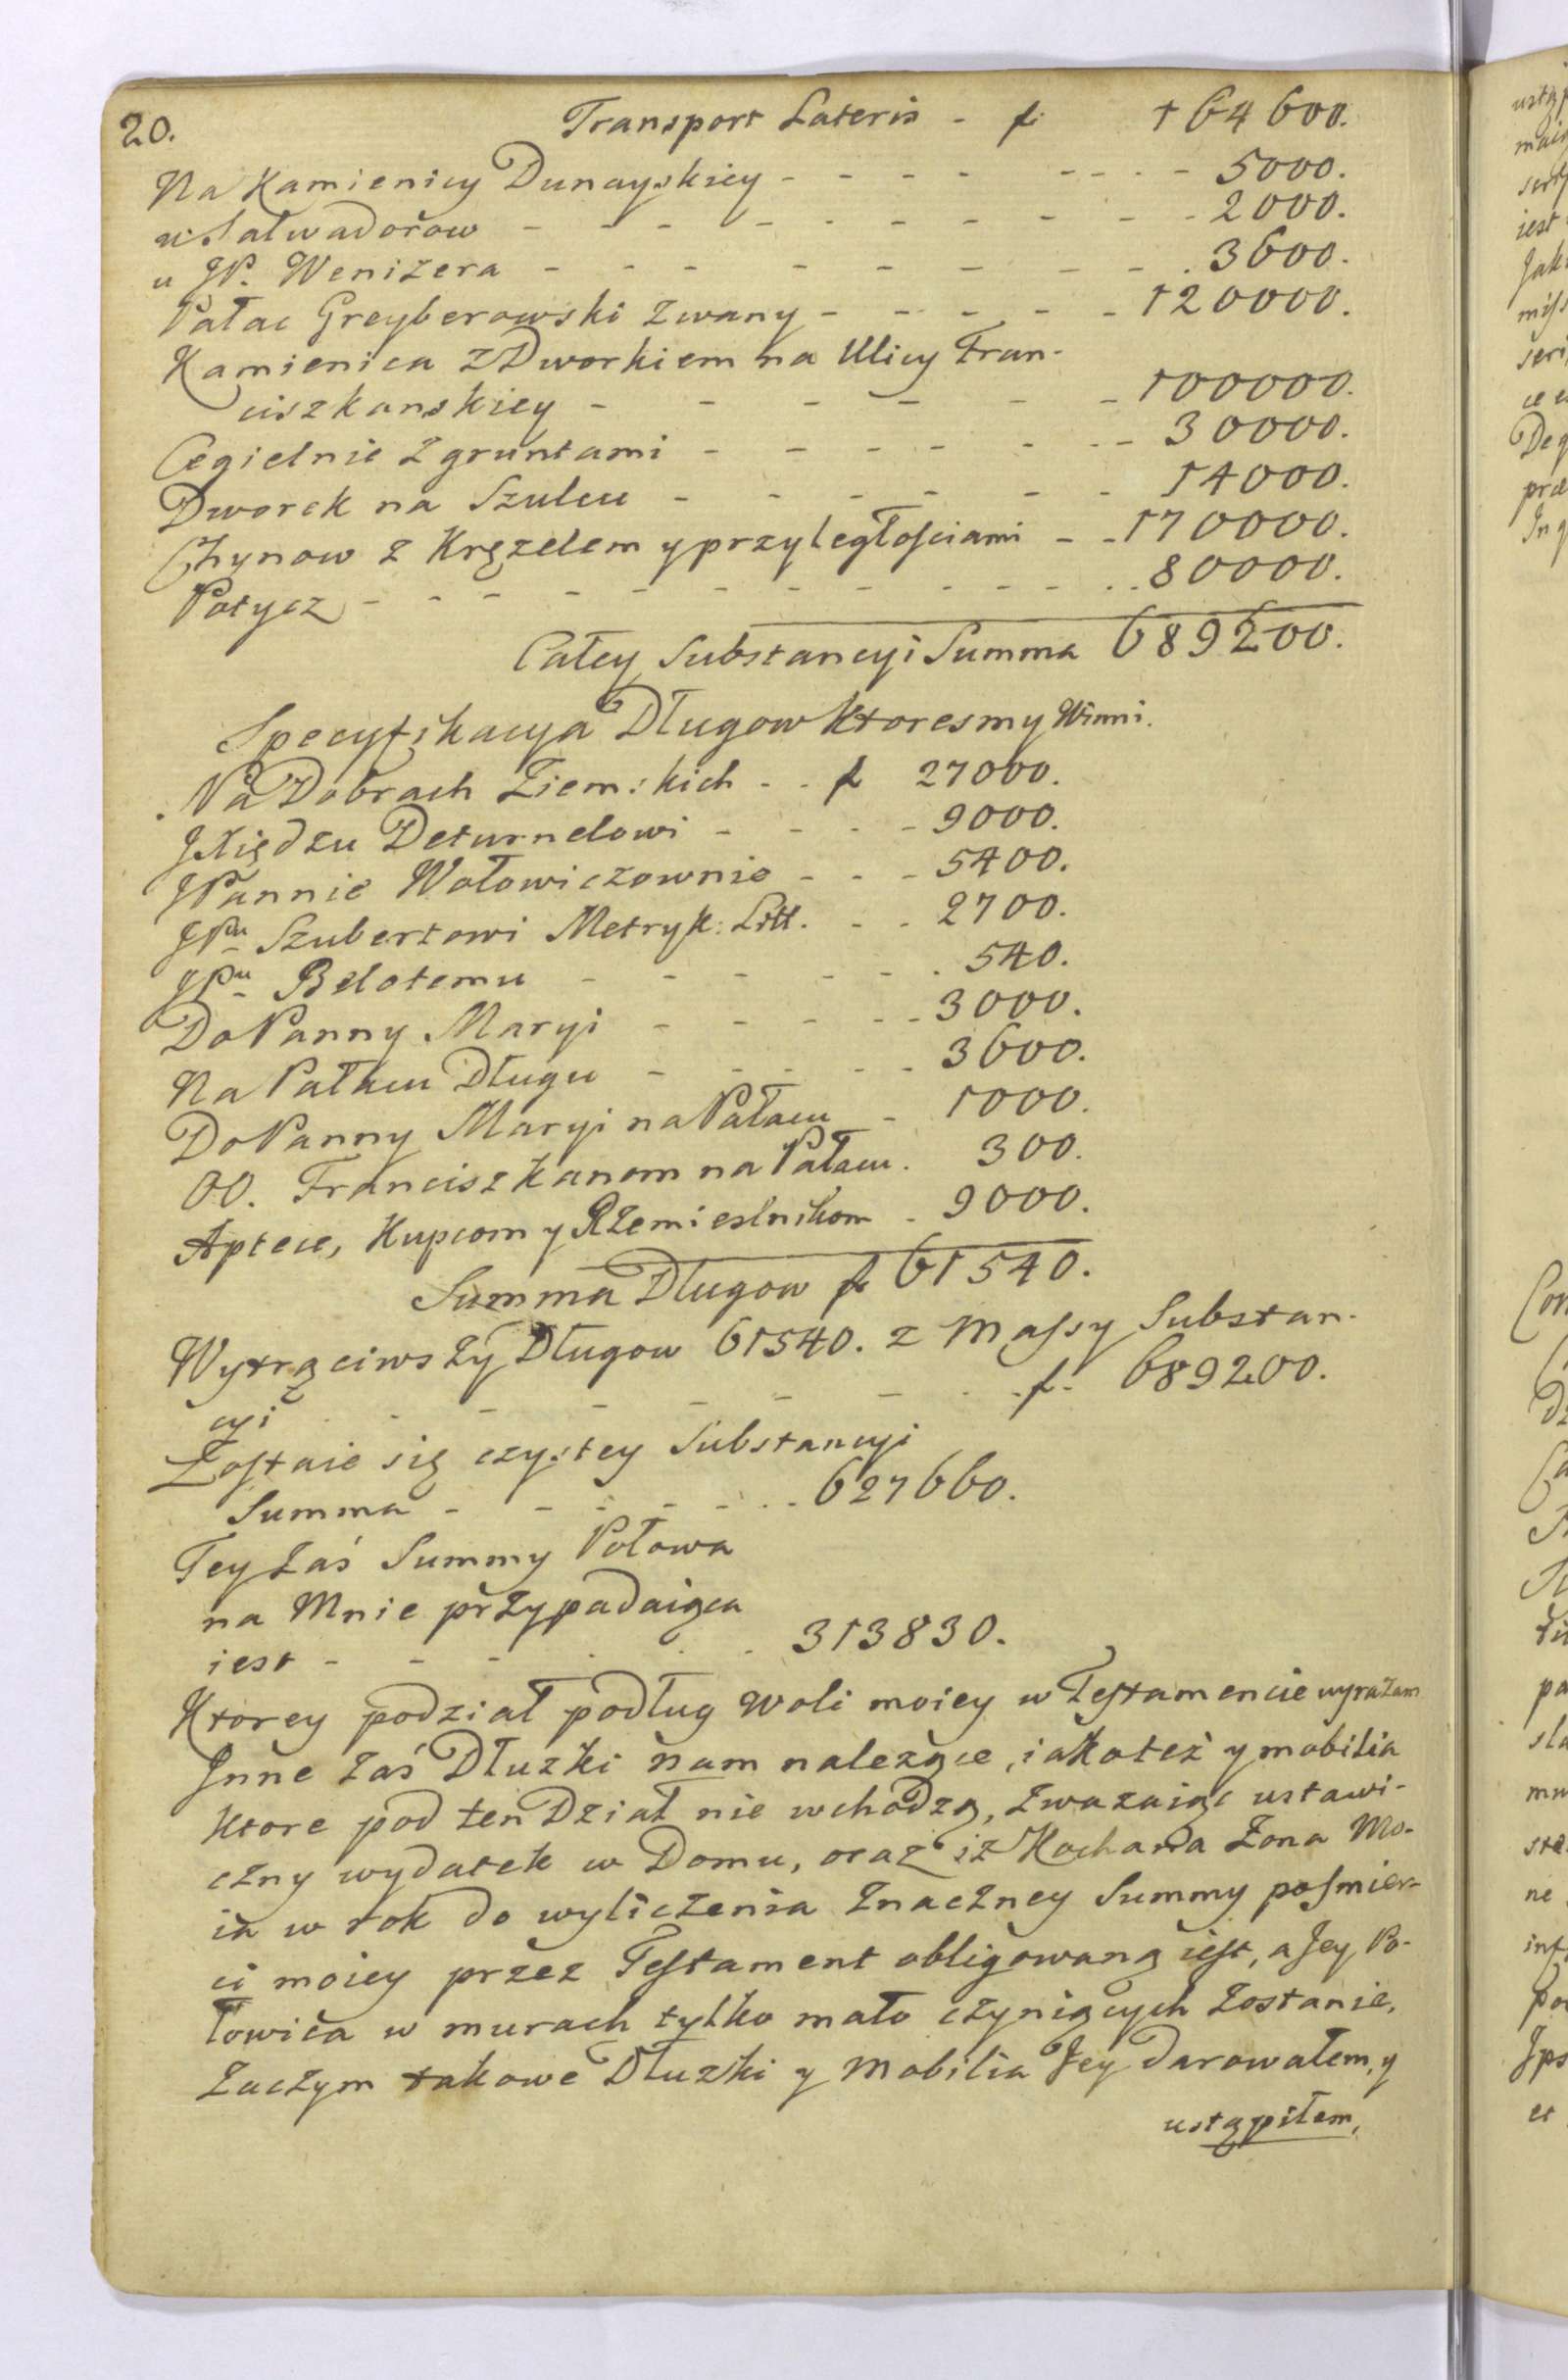 20.
Transport Lateris - f. 164600.
Na Kamienicy Dunayskiey - - - - - - - - 5000.
u Salwadorow - - - - - - - - - 2000.
u JP. Wenizera - - - - - - - - . 3600.
Pałac Greyberowski zwany - - - - - 120000.
Kamienica z Dworkiem na Ulicy Fran-
ciszkanskiey - - - - - - 100000.
Cegielnie z gruntami - - - - - - - 30000.
Dworek na Szulcu - - - - - - 14000.
Chynow z Kręzelem y przyległościami - - 170000.
Potycz - - - - - - - - - - - - . . 80000.
Całey Substancyi Summa 689200.
Specyfikacya Długow Ktoresmy Winni.
Na Dobrach Ziemskich - - f 27000.
JXiędzu Deturnelowi - - - - 9000.
JPannie Wołowiczownie - - - 5400.
JPu Szubertowi Metryk: Litt. - - 2700.
JPu Belotemu - - - - - . 540.
Do Panny Maryi - - - - - 3000.
Na Pałacu Długu - - - - - 3600.
Do Panny Maryi na Pałacu - 1000.
OO. Franciszkanom na Pałacu. 300.
Aptece, Kupcom y Rzemieslnikom - 9000.
Summa Długow f 61540.
Wytrąciwszy Długow 61540. z Massy Substan-
cyi - - - - - - - f. 689200.
Zostaie się czystey Substancyi
Summa - - - - - . . 627660.
Tey zaś Summy Połowa
na Mnie przypadaiąca
iest - - - - - - 313830.
Ktorey podział podług Woli moiey w Testamencie wyrażam
Inne zaś Dłuzki nam należące, iakoteż y mobilia
Ktore pod ten Dział nie wchodzą, zwazaiąc ustawi-
czny wydatek w Domu, oraz iż Kochana Zona Mo-
ia w rok do wyliczenia znaczney Summy pośmier-
ci moiey przez Testament obligowaną iest, a Jey Po-
łowica w murach tylko mało czyniących zostanie,
zaczym takowe Dłuzki y Mobilia Jey darowałem, y
ustąpiłem,